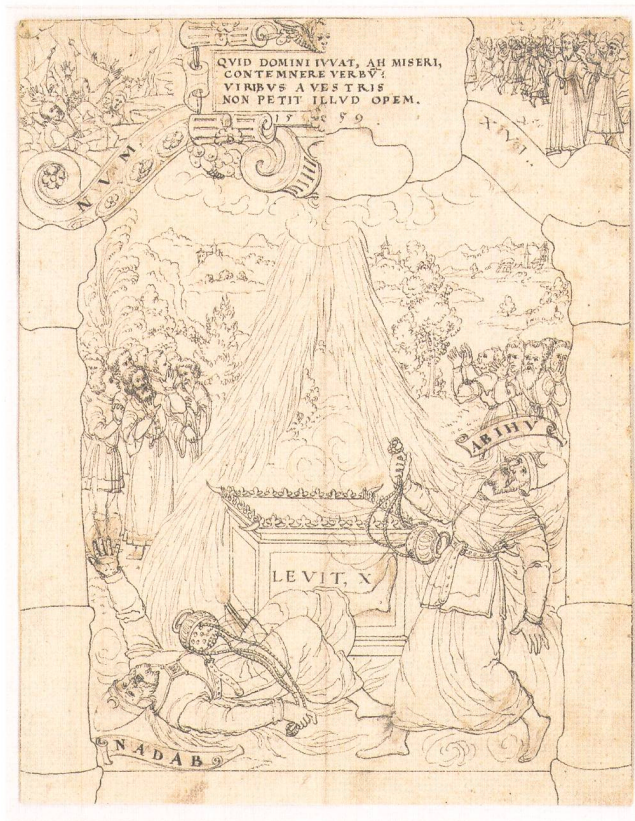 QUID DOMINI IVVAT, AH MISERI,
CONTEMNERE VERBV̄?
VIRIBUS A VESTRIS
NON PETIT ILLVD OPEM.
15 59.
NVM
XVI..
ABIHV
LEVIT, X
NADAB